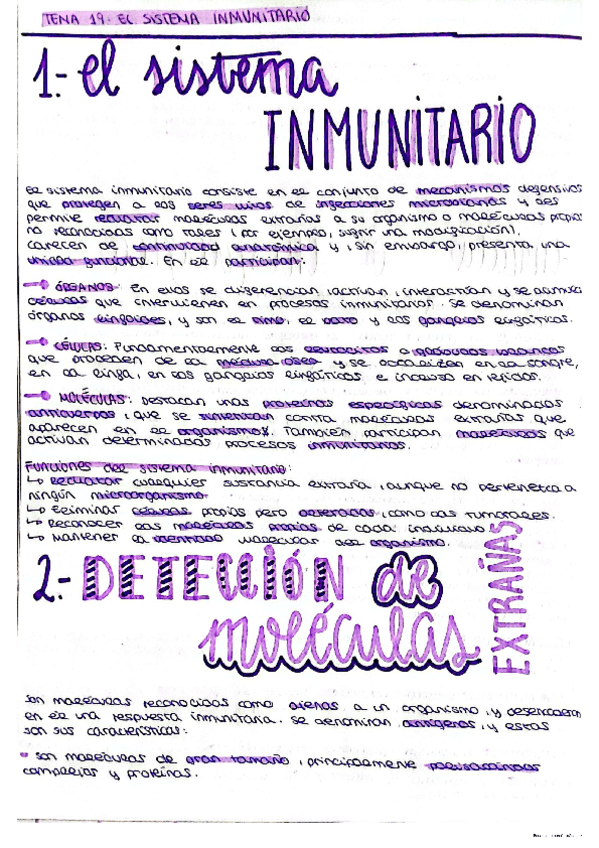 TEMA 19. EL SISTEMA INMUNITARIO
1.- el sistema
INMUNITARIO
El sistema inmunitario consiste en el conjunto de mecanismos defensivos
que protegen a los seres vivos de infecciones microbianas y les
permite rechazar moléculas extrañas a su organismo o moléculas propias
no reconocidas como tales (por ejemplo, sufrir una modificación).
Carecen de continuidad anatómica y, sin embargo, presenta una
unidad funcional. En él participan:
ÓRGANOS: En ellos se diferencian, activan, interactúan y se
células que intervienen en procesos inmunitarios. Se denominan
órganos linfoides, y son el timo, el bazo y los ganglios linfáticos.
CÉLULAS: Fundamentalmente los leucocitos o glóbulos blancos
que proceden de la médula ósea y se localizan en la sangre,
en la linfa, en los ganglios linfáticos e incluso en tejidos.
MOLÉCULAS: Destacan unas proteínas específicas denominadas
anticuerpos, que se sintetizan contra moléculas extrañas que
aparecen en el organismo. También participan moléculas que
activan determinados procesos inmunitarios.
Funciones del sistema inmunitario:
↳ Rechazar cualquier sustancia extraña, aunque no pertenezca a
ningún microorganismo
↳ Eliminar células propias pero alteradas, como las tumorales.
↳ Reconocer las moléculas propias de cada individuo
↳ Mantener la identidad molecular del organismo.
2.- DETECCIÓN de
moléculas EXTRAÑAS
Son moléculas reconocidas como ajenas a un organismo, y desencadenan
en él una respuesta inmunitaria. Se denominan antígenos, y estas
son sus características:
Son moléculas de gran tamaño, principalmente polisacáridos
complejos y proteínas.